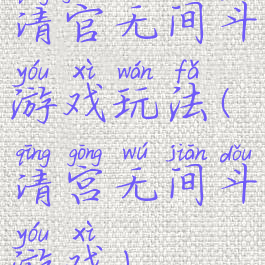 清官无间斗
yóu xì wán fǎ
游戏玩法(
qīng gōng wú jiān dǒu
清宫无间斗
yóu xì
游戏)